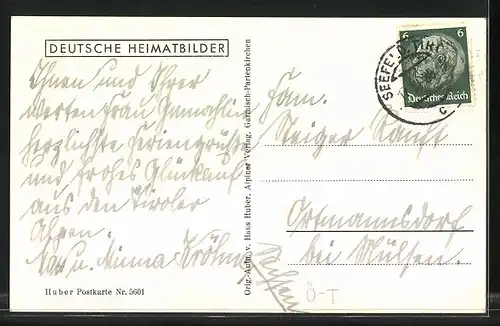 DEUTSCHE HEIMATBILDER
Ihnen und Ihrer
werten Frau Gemahlin
herzlichste Feriengrüße
und frohes Glückauf
aus den Tiroler
Alpen.
u. Minna
Huber Postkarte Nr. 5601
Orig.-Aufn. v. Hans Huber, Alpiner Verlag, Garmisch-Partenkirchen
6 6
Deutsches Reich
SEEFELD
c
Fam.
Steiger
Ortmannsdorf
bei Mülsen.
Sachsen
Ö-T